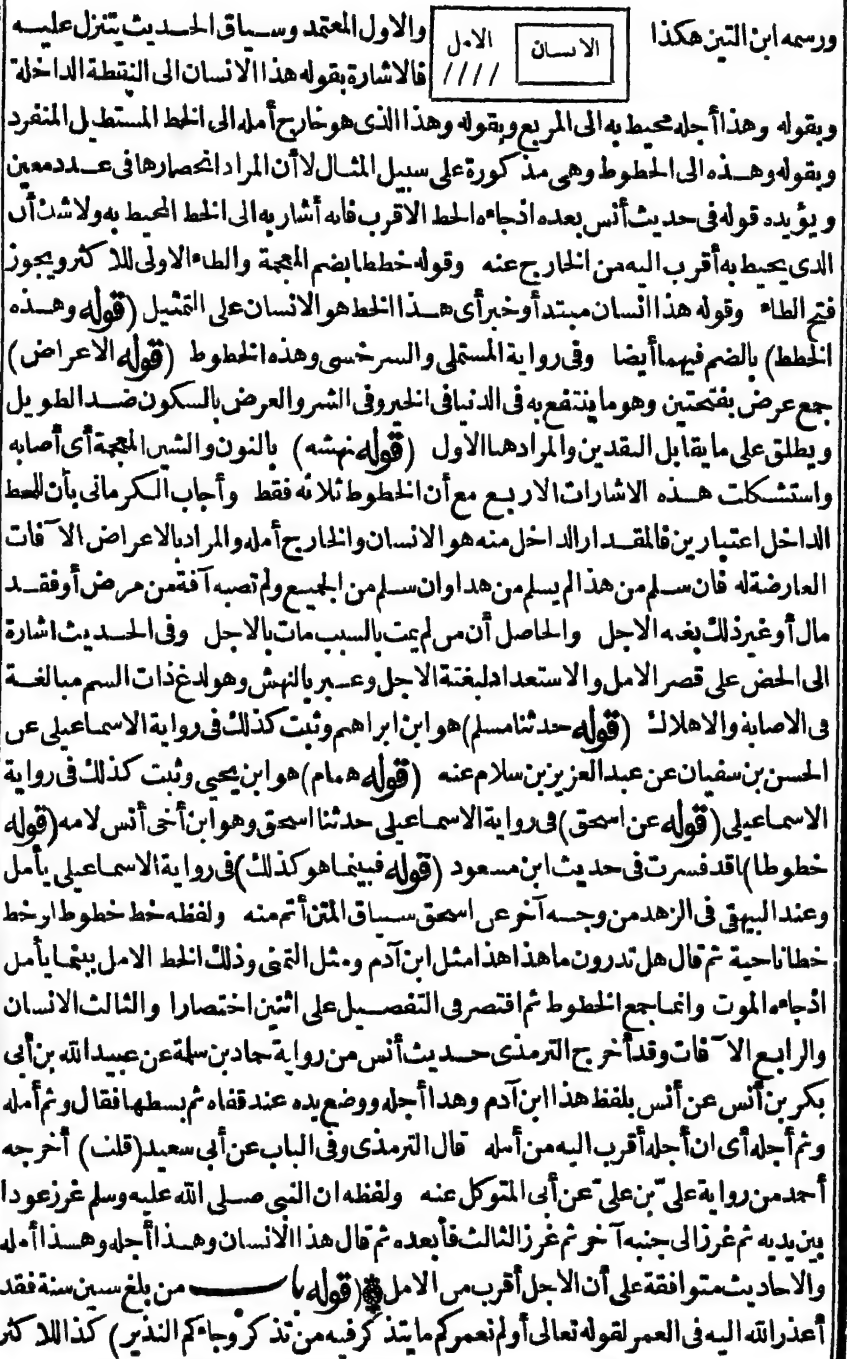 ورسمه ابن التين هكذا الانسان الامل //// والاول المعتمد وسياق الحديث يتنزل عليه
فالاشارة بقوله هذا الانسان الى النقطة الداخلة
وبقوله وهذا أجله محيط به الى المربع وبقوله وهذا الذى هو خارج أمله الى الخط المستطيل المنفرد
وبقوله وهذه الى الخطوط وهى مذكورة على سبيل المثال لا أن المراد انحصارها فى عدد معين
ويؤيده قوله فى حديث أنس بعده اذ جاءه الخط الاقرب فانه أشار به الى الخط المحيط به ولا شك أن
الذى يحيط به أقرب اليه من الخارج عنه وقوله خططا بضم المعجمة والطاء الاولى للاكثر ويجوز
فتح الطاء وقوله هذا انسان مبتدأ وخبر أى هذا الخط هو الانسان على التمثيل (قوله وهذه
الخطط) بالضم فيهما أيضا وفى رواية المستملى والسرخسى وهذه الخطوط (قوله الاعراض)
جمع عرض بفتحتين وهو ما ينتفع به فى الدنيا فى الخير وفى الشر والعرض بالسكون ضد الطويل
ويطلق على ما يقابل النقدين والمراد هنا الاول (قوله نهشه) بالنون والشين المعجمة أى أصابه
واستشكلت هذه الاشارات الاربع مع أن الخطوط ثلاثة فقط وأجاب الكرمانى بأن للخط
الداخل اعتبارين فالمقدار الداخل منه هو الانسان والخارج أمله والمراد بالاعراض الآفات
العارضة له فان سلم من هذا لم يسلم من هذا وان سلم من الجميع ولم تصبه آفة من مرض أو فقد
مال أو غير ذلك بغته الاجل والحاصل أن من لم يمت بالسبب مات بالاجل وفى الحديث اشارة
الى الحض على قصر الامل والاستعداد لبغتة الاجل وعبر بالنهش وهو لدغ ذات السم مبالغة
فى الاصابة والاهلاك (قوله حدثنا مسلم) هو ابن ابراهيم وثبت كذلك فى رواية الاسماعيلى عن
الحسن بن سفيان عن عبد العزيز بن سلام عنه (قوله همام) هو ابن يحيى وثبت كذلك فى رواية
الاسماعيلى (قوله عن اسحق) فى رواية الاسماعيلى حدثنا اسحق وهو ابن أخى أنس لامه (قوله
خطوطا) قد فسرت فى حديث ابن مسعود (قوله فبينما هو كذلك) فى رواية الاسماعيلى يأمل
وعند البيهقى فى الزهد من وجه آخر عن اسحق سياق المتن أتم منه ولفظه خط خطوطا وخط
خطا ناحية ثم قال هل تدرون ما هذا هذا مثل ابن آدم ومثل التمنى وذلك الخط الامل بينما يأمل
اذ جاءه الموت وانما جمع الخطوط ثم اقتصر فى التفصيل على اثنين اختصارا والثالث الانسان
والرابع الآفات وقد أخرج الترمذى حديث أنس من رواية حماد بن سلمة عن عبيد الله بن أبى
بكر بن أنس عن أنس بلفظ هذا ابن آدم وهذا أجله ووضع يده عند قفاه ثم بسطها فقال وثم أمله
وثم أجله أى ان أجله أقرب اليه من أمله قال الترمذى وفى الباب عن أبى سعيد (قلت) أخرجه
أحمد من رواية على بن على عن أبى المتوكل عنه ولفظه ان النبى صلى الله عليه وسلم غرز عودا
بين يديه ثم غرز الى جنبه آخر ثم غرز الثالث فأبعده ثم قال هذا الانسان وهذا أجله وهذا أمله
والاحاديث متوافقة على أن الاجل أقرب من الامل (قوله باب من بلغ ستين سنة فقد
أعذر الله اليه فى العمر لقوله تعالى أولم نعمركم ما يتذكر فيه من تذكر وجاءكم النذير) كذا للاكثر